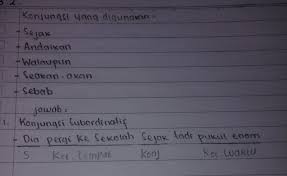 Konjungsi yang digunakan -
- Sejak
- Andaikan
- Walaupun
- Seakan-akan
- Sebab
jawab:
1. Konjungsi Subordinatif
- Dia pergi ke Sekolah Sejak tadi pukul enam
S Ket. tempat Konj Ket. waktu